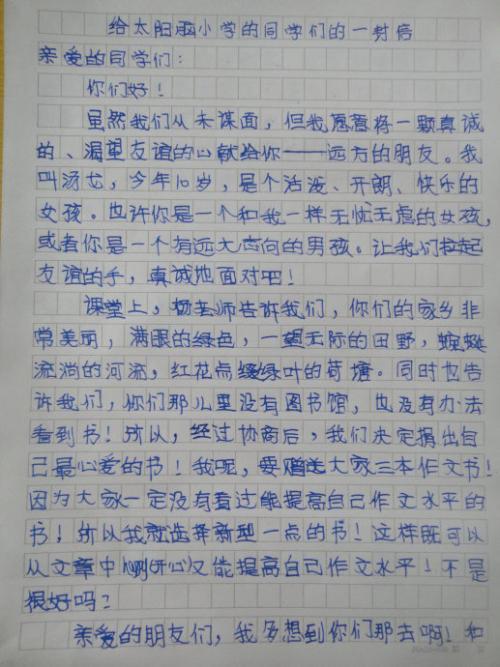 给太阳庙小学的同学们的一封信
亲爱的同学们:
你们好!
虽然我们从未谋面,但我愿意将一颗真诚
的、渴望友谊的心献给你——远方的朋友。我
叫汤尤,今年10岁,是个活泼、开朗、快乐的
女孩。也许你是一个和我一样无忧无虑的女孩,
或者你是一个有远大志向的男孩。让我们拉起
友谊的手,真诚地面对吧!
课堂上,杨老师告诉我们,你们的家乡非
常美丽,满眼的绿色,一望无际的田野,蜿蜒
流淌的河流,红花点缀绿叶的荷塘。同时也告
诉我们,你们那儿里没有图书馆,也没有办法
看到书!所以,经过协商后,我们决定捐出自
己最心爱的书!我呢,要赠送大家三本作文书!
因为大家一定没有看过能提高自己作文水平的
书!所以我就选择新型一点的书!这样既可以
从文章中(开心)又能提高自己作文水平!不是
很好吗?
亲爱的朋友们,我多想到你们那去啊!和